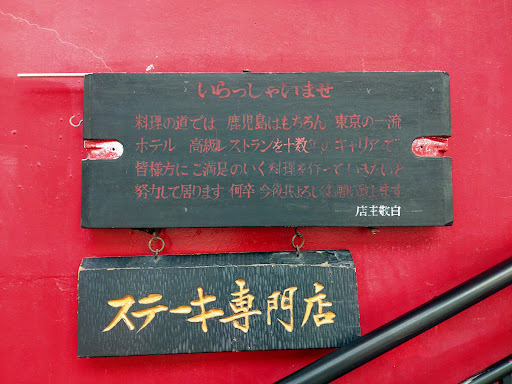 いらっしゃいませ
料理の道では 鹿児島はもちろん 東京の一流
ホテル 高級レストランを十数年のキャリアで
皆様方にご満足のいく料理を行って いきたいと
努力して居ります 何卒 今後共よろしくお願い致します
店主敬白
ステーキ専門店